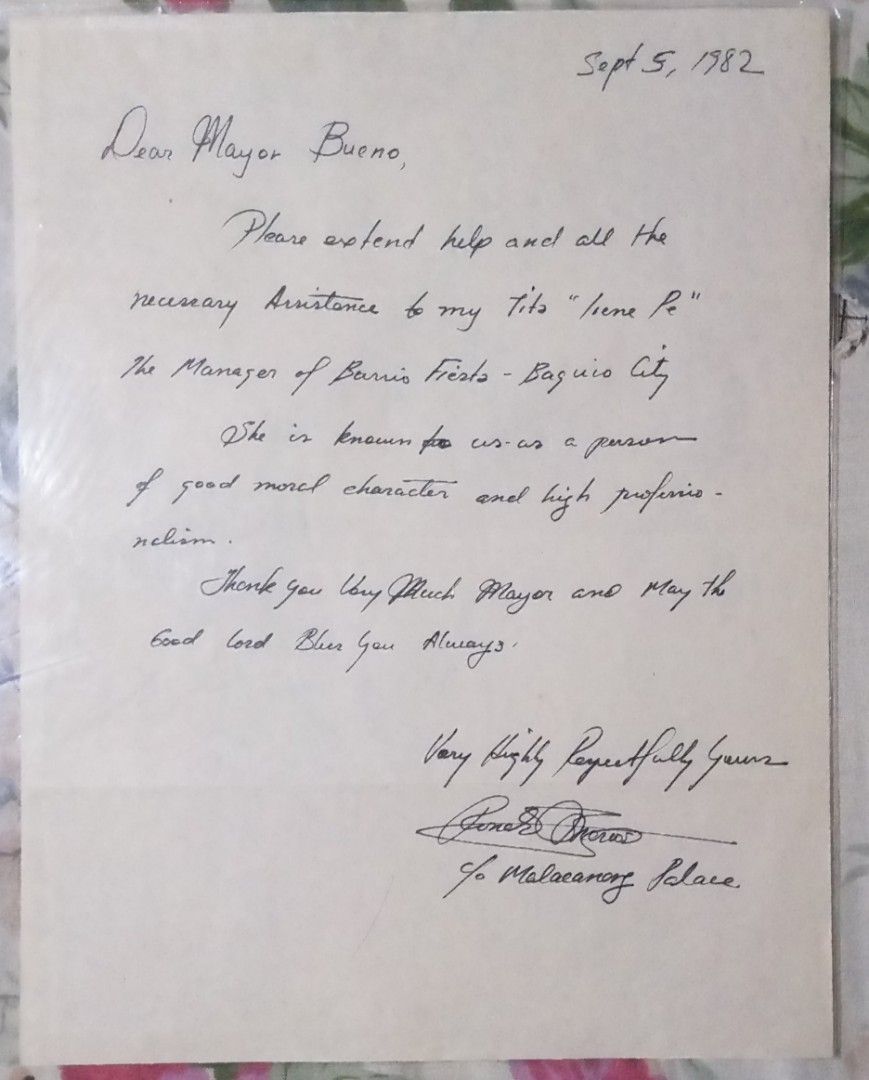 Sept 5, 1982
Dear Mayor Bueno,
Please extend help and all the
necessary Assistance to my Tita "Irene Pe"
The Manager of Barrio Fiesta - Baguio City
She is known to us as a person
of good moral character and high professio-
nalism.
Thank you Very Much Mayor and May the
Good Lord Bless You Always.
Very Highly Respectfully Yours
c/o Malacanang Palace